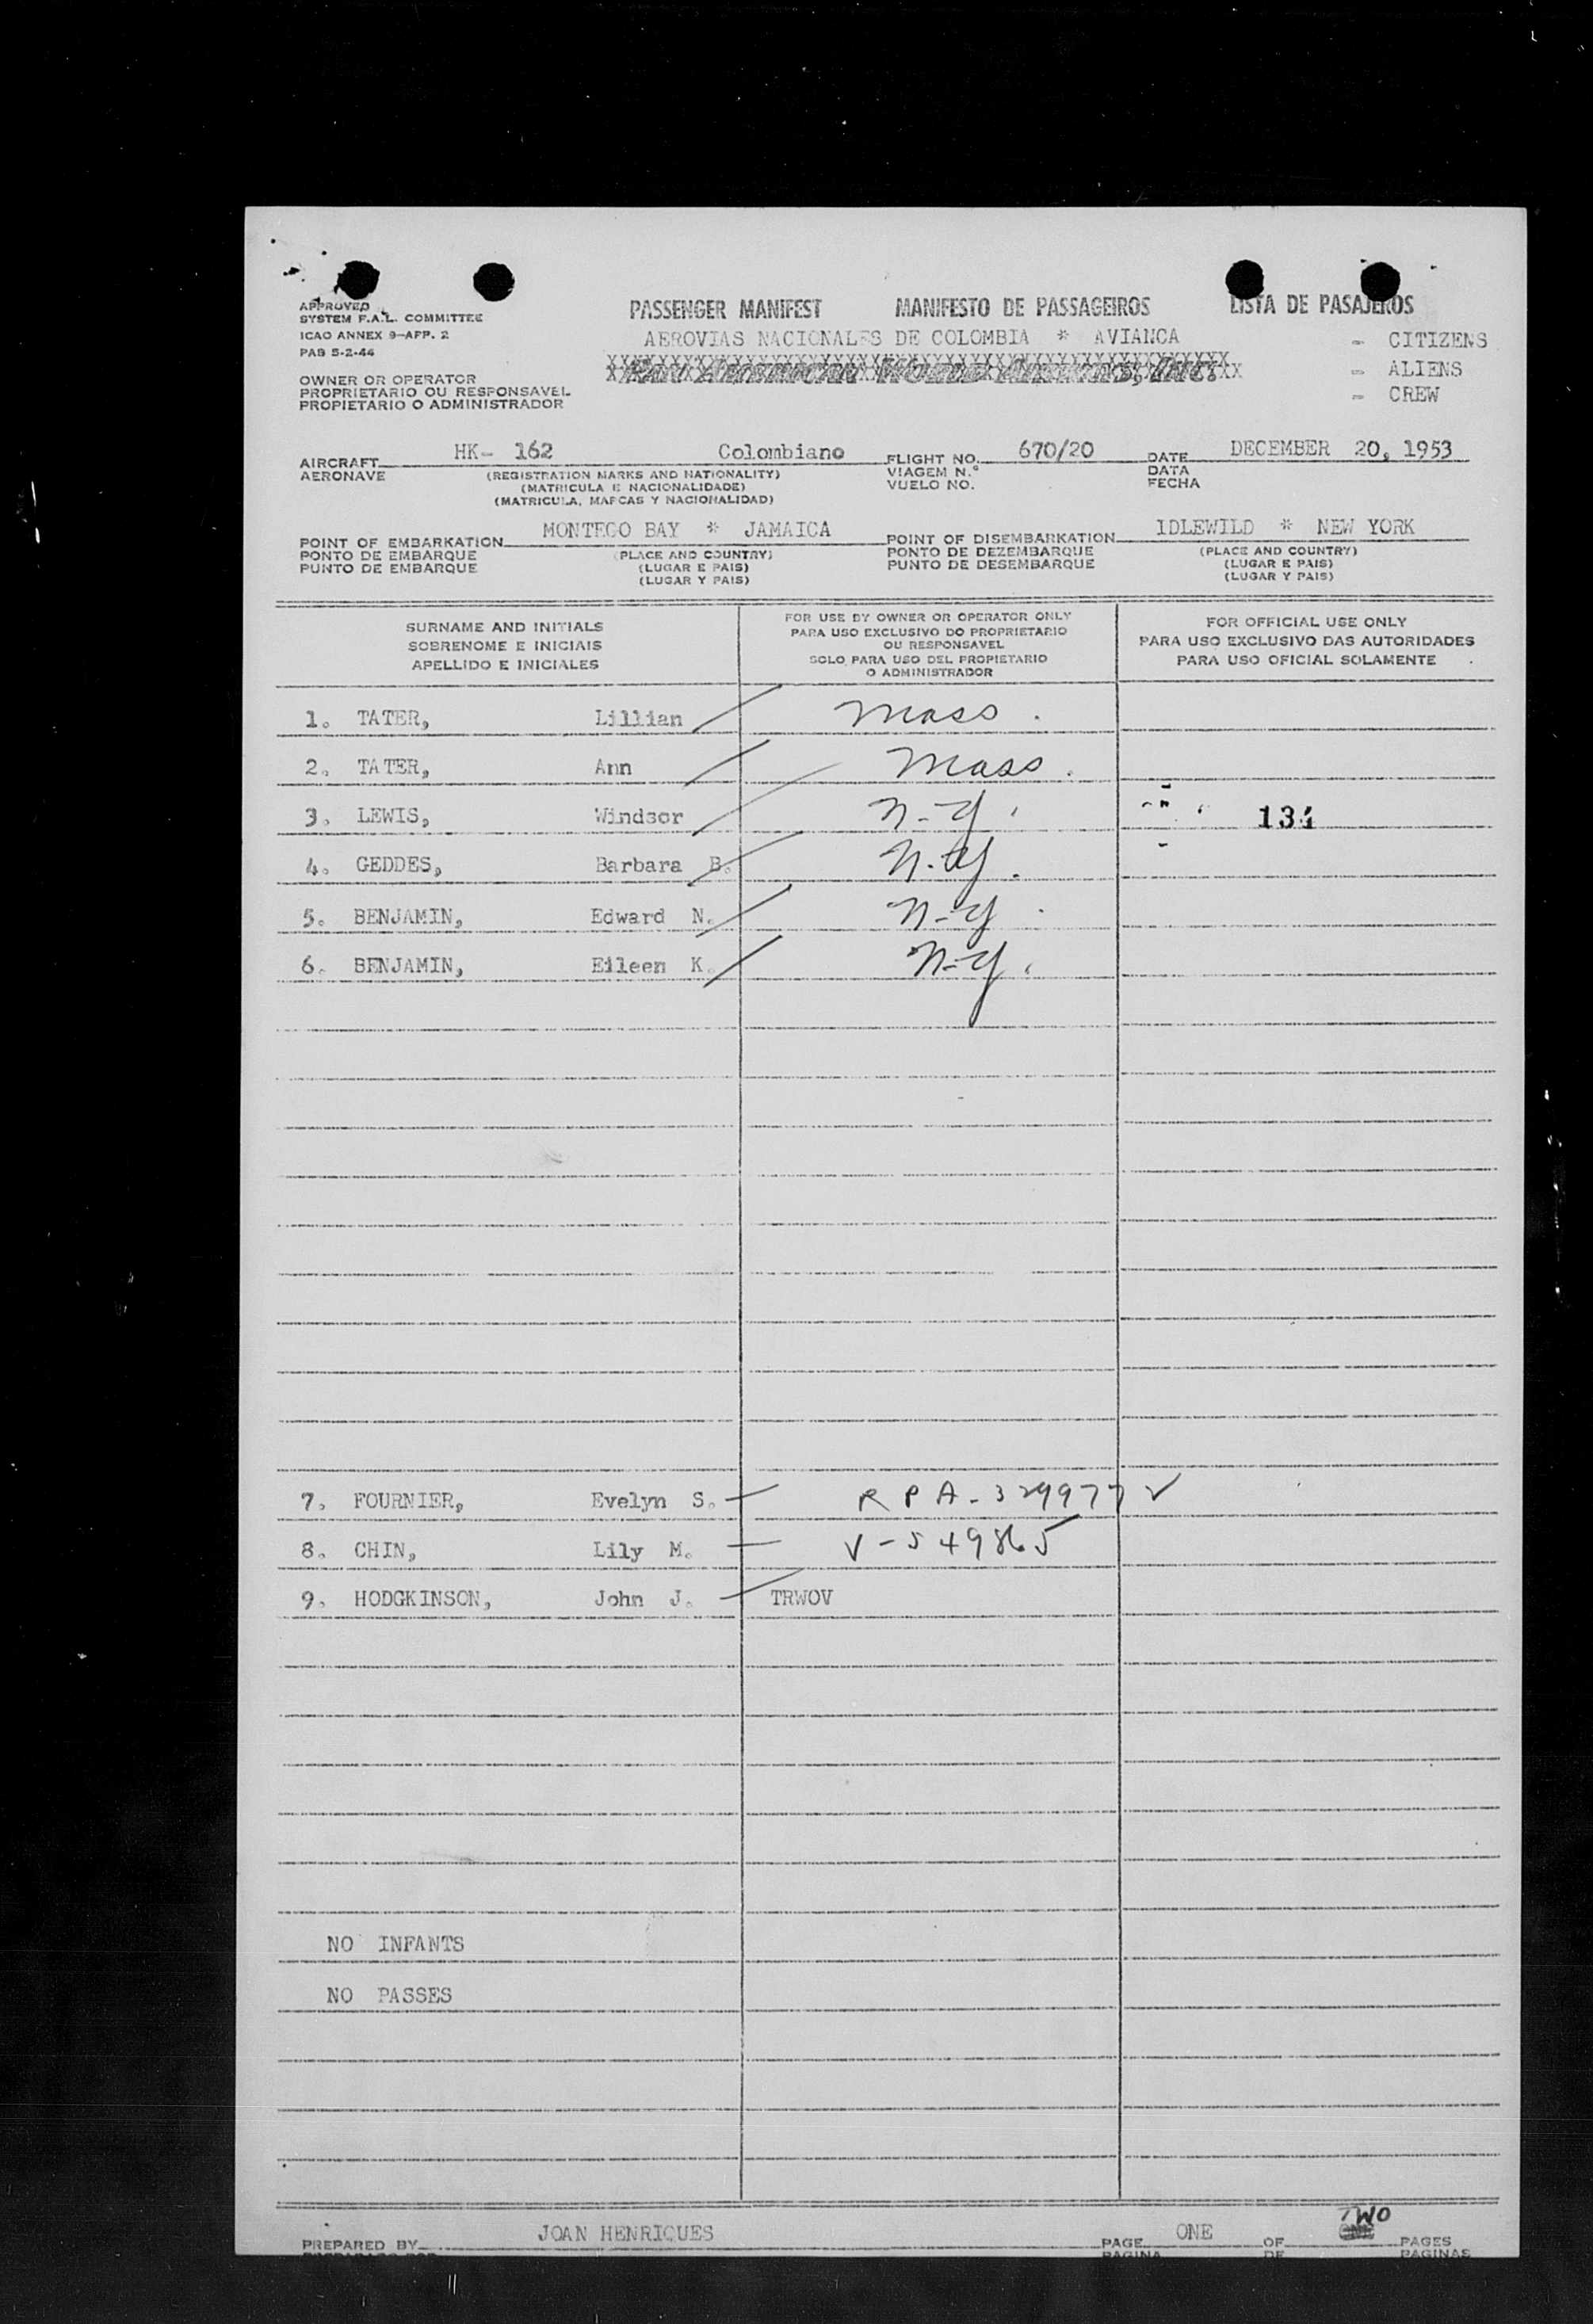 APPROVED
SYSTEM F.A.L. COMMITTEE
ICAO ANNEX 9—APP. 2
PAB 5-2-46
PASSENGER MANIFEST MANIFESTO DE PASSAGEIROS LISTA DE PASAJEROS
AEROVIAS NACIONALES DE COLOMBIA * AVIANCA
PAN AMERICAN WORLD AIRWAYS, INC.
- CITIZENS
- ALIENS
- CREW
OWNER OR OPERATOR
PROPRIETARIO OU RESPONSAVEL
PROPIETARIO O ADMINISTRADOR
AIRCRAFT HK- 162 Colombiano FLIGHT NO. 670/20 DATE DECEMBER 20, 1953
AERONAVE (REGISTRATION MARKS AND NATIONALITY) VIAGEM N.º DATA
(MATRICULA E NACIONALIDADE) VUELO NO. FECHA
(MATRICULA, MARCAS Y NACIONALIDAD)
POINT OF EMBARKATION MONTEGO BAY * JAMAICA POINT OF DISEMBARKATION IDLEWILD * NEW YORK
PONTO DE EMBARQUE (PLACE AND COUNTRY) PONTO DE DEZEMBARQUE (PLACE AND COUNTRY)
PUNTO DE EMBARQUE (LUGAR E PAIS) PUNTO DE DESEMBARQUE (LUGAR E PAIS)
(LUGAR Y PAIS) (LUGAR Y PAIS)
SURNAME AND INITIALS
SOBRENOME E INICIAIS
APELLIDO E INICIALES
FOR USE BY OWNER OR OPERATOR ONLY
PARA USO EXCLUSIVO DO PROPRIETARIO
OU RESPONSAVEL
SOLO PARA USO DEL PROPIETARIO
O ADMINISTRADOR
FOR OFFICIAL USE ONLY
PARA USO EXCLUSIVO DAS AUTORIDADES
PARA USO OFICIAL SOLAMENTE
1. TATER, Lillian Mass.
2. TATER, Ann Mass.
3. LEWIS, Windsor N-Y.
4. GEDDES, Barbara B. N.Y.
5. BENJAMIN, Edward N. N-Y.
6. BENJAMIN, Eileen K. N-Y.
7. FOURNIER, Evelyn S. RPA-329977 ✓
8. CHIN, Lily M. V-549865
9. HODGKINSON, John J. TRWOV
NO INFANTS
NO PASSES
PREPARED BY JOAN HENRIQUES PAGE ONE OF TWO PAGES
PAGINA DE PAGINAS